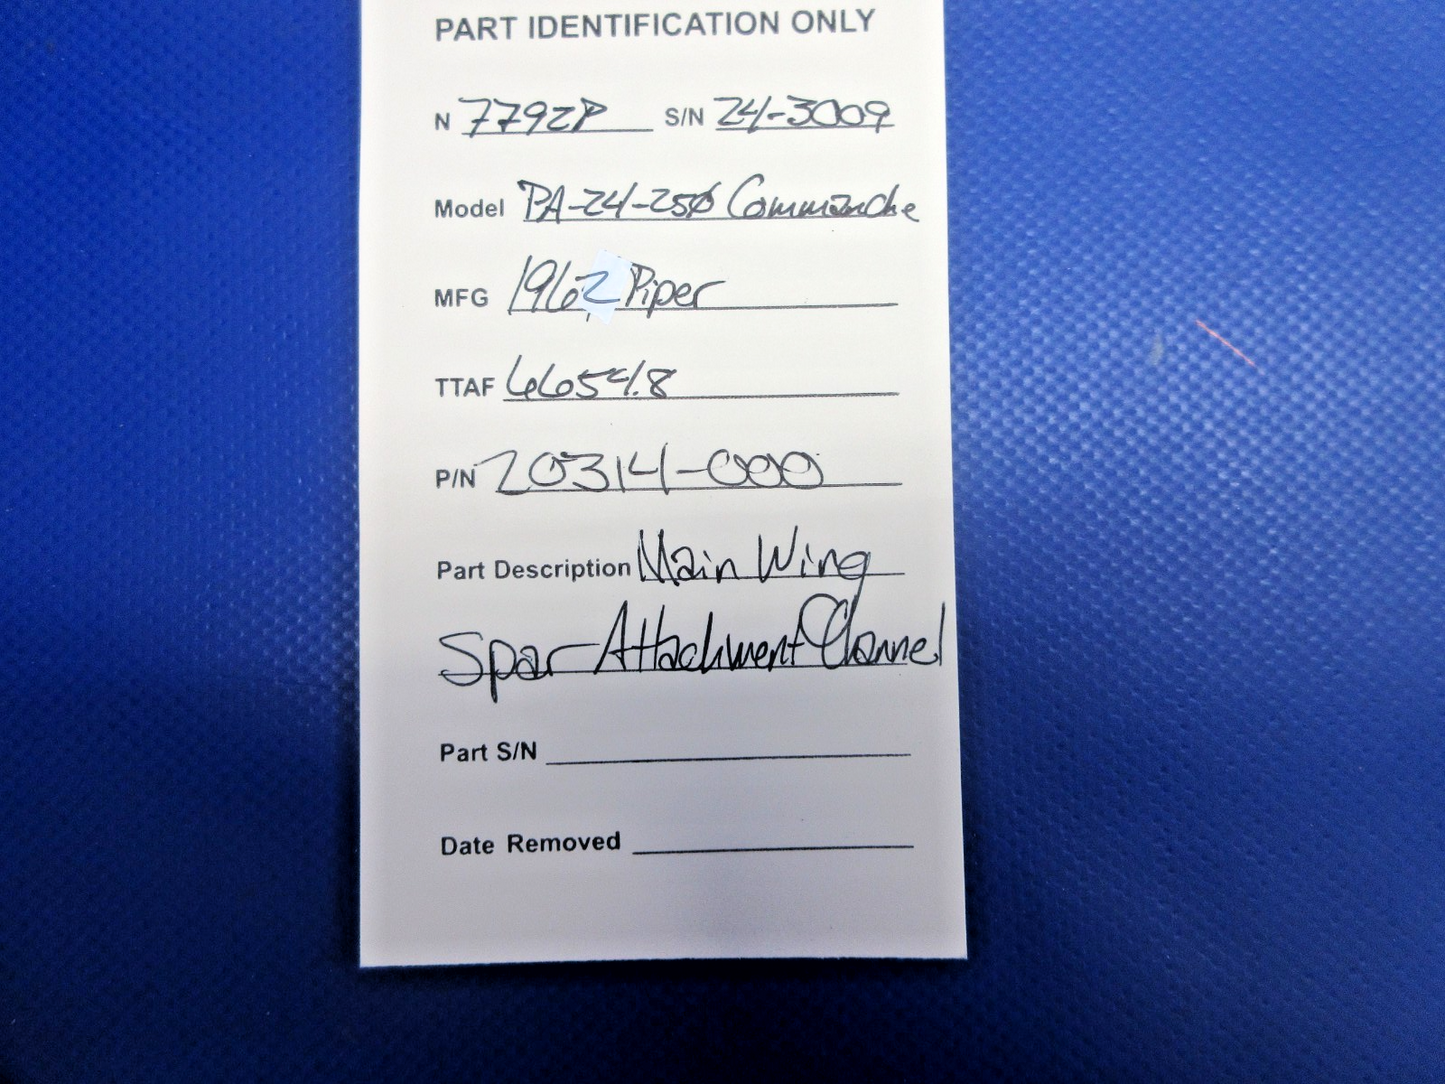 PART IDENTIFICATION ONLY
N 7792P S/N 24-3009
Model PA-24-250 Commanche
MFG 1962 Piper
TTAF 6654.8
P/N 20314-000
Part Description Main Wing
Spar Attachment Channel
Part S/N
Date Removed